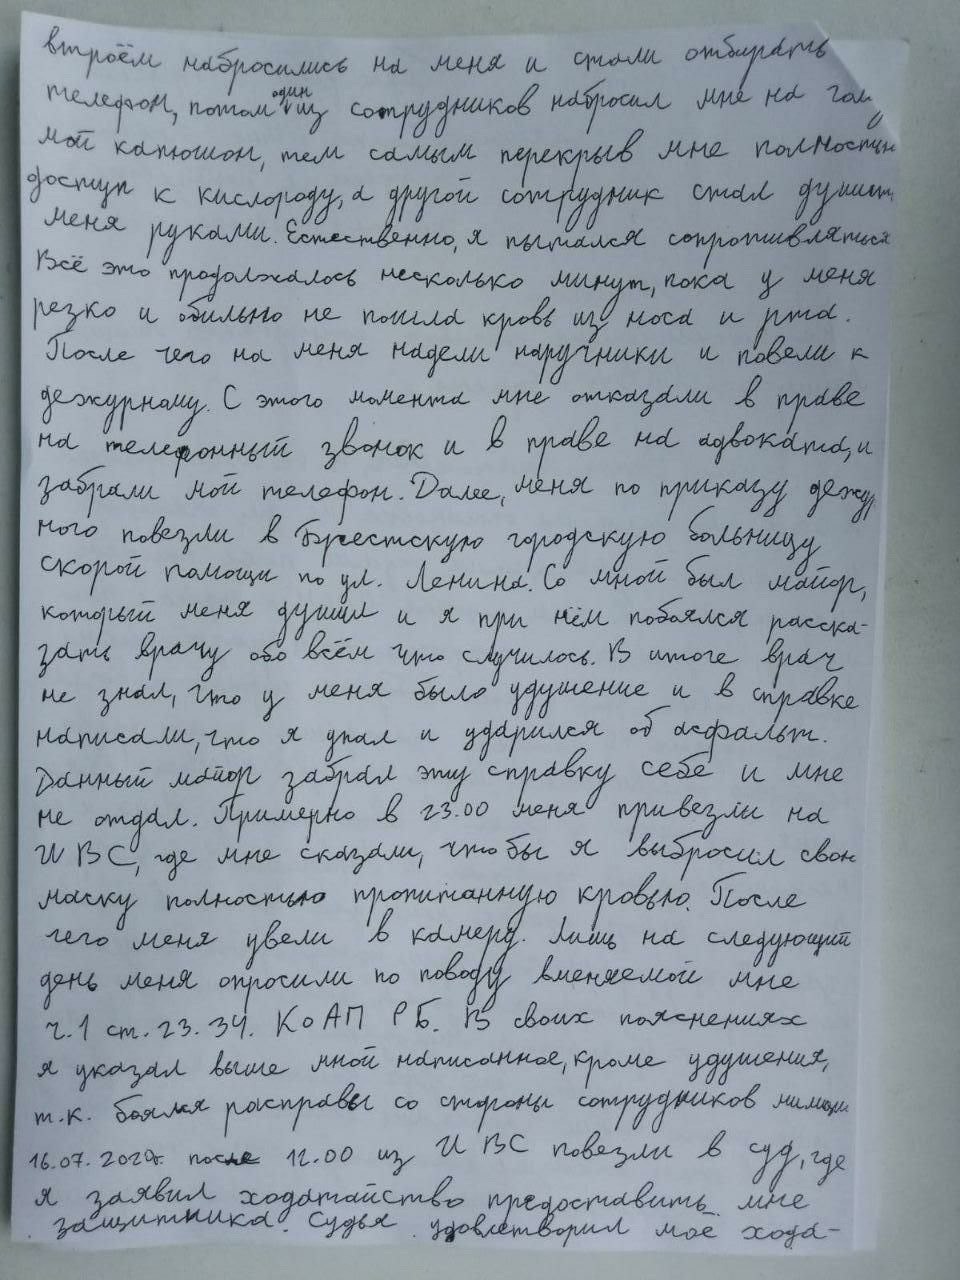 втроём набросились на меня и стали отбирать
телефон, потом один из сотрудников набросил мне на гол
мой капюшон, тем самым перекрыв мне полностью
доступ к кислороду, а другой сотрудник стал душить
меня руками. Естественно, я пытался сопротивляться
Всё это продолжалось несколько минут, пока у меня
резко и обильно не пошла кровь из носа и рта.
После чего на меня надели наручники и повели к
дежурному. С этого момента мне отказали в праве
на телефонный звонок и в праве на адвоката, и
забрали мой телефон. Далее, меня по приказу дежур
ного повезли в Брестскую городскую больницу
скорой помощи по ул. Ленина. Со мной был майор,
который меня душил и я при нём побоялся расска-
зать врачу обо всём что случилось. В итоге врач
не знал, что у меня было удушение и в справке
написали, что я упал и ударился об асфальт.
Данный майор забрал эту справку себе и мне
не отдал. Примерно в 23.00 меня привезли на
ИВС, где мне сказали, чтобы я выбросил свою
маску полностью пропитанную кровью. После
чего меня увели в камеру. Лишь на следующий
день меня опросили по поводу вменяемой мне
ч.1 ст.23.34. КоАП РБ. В своих пояснениях
я указал выше мной написанное, кроме удушения,
т.к. боялся расправы со стороны сотрудников милиции
16.07.2020г. после 12.00 из ИВС повезли в суд, где
я заявил ходатайство предоставить мне
защитника. Судья удовлетворил моё хода-